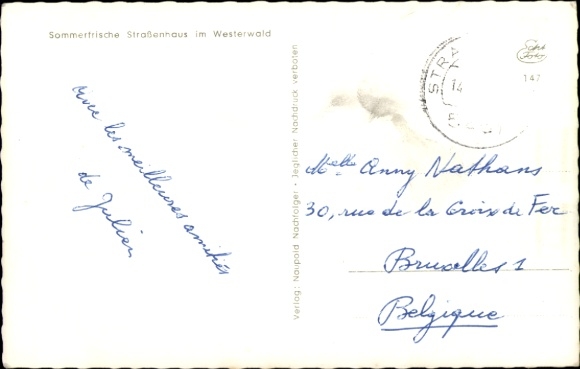 Sommerfrische Straßenhaus im Westerwald
les meilleures amitiés
de Julien
Verlag: Naupold Nachfolger - Jeglicher Nachdruck verboten
Echt
Foto
147
STRA
14
Melle Anny Nathans
30, rue de la Croix de Fer
Bruxelles 1
Belgique